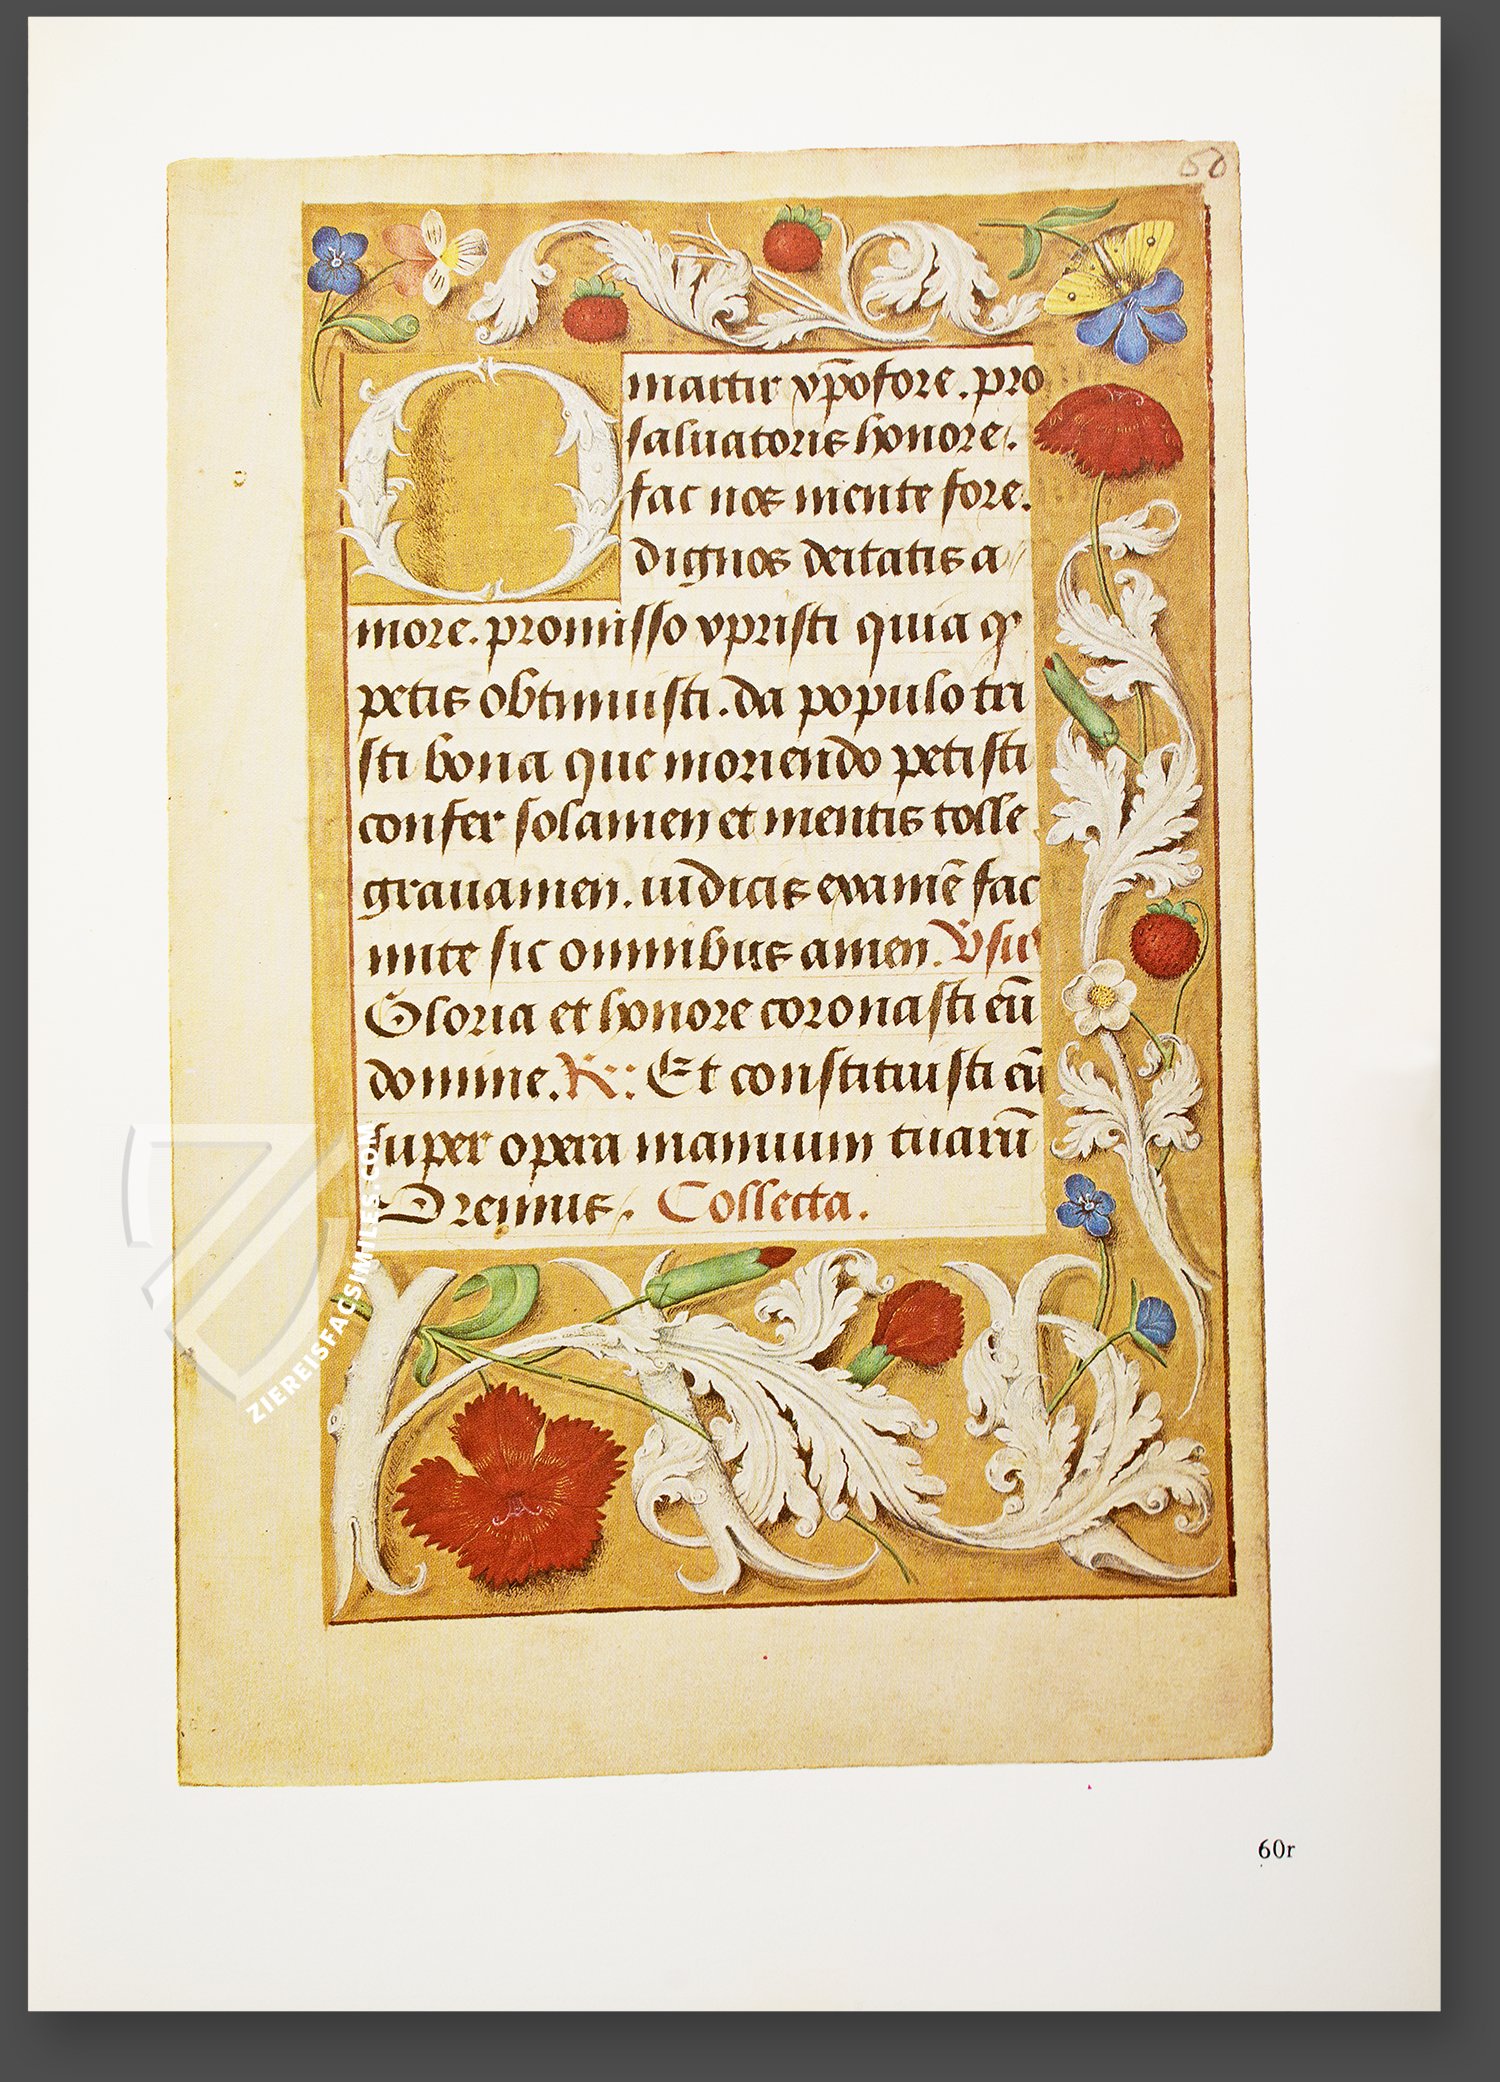 50
O
martir xp̄ofore . pro
saluatoris honore .
fac nos mente fore .
dignos deitatis a
more . promisso xpristi quia q̨
petis obtinuisti . da populo tri
sti bona que moriendo petisti
confer solamen et mentis tolle
grauamen . iudicis examē fac
mite sic omnibus amen . Vsus
Gloria et honore coronasti eū
domine . R : Et constituisti eū
super opera manuum tuarū
Oremus . Collecta .
ZIEREISFACSIMILES.COM
60r